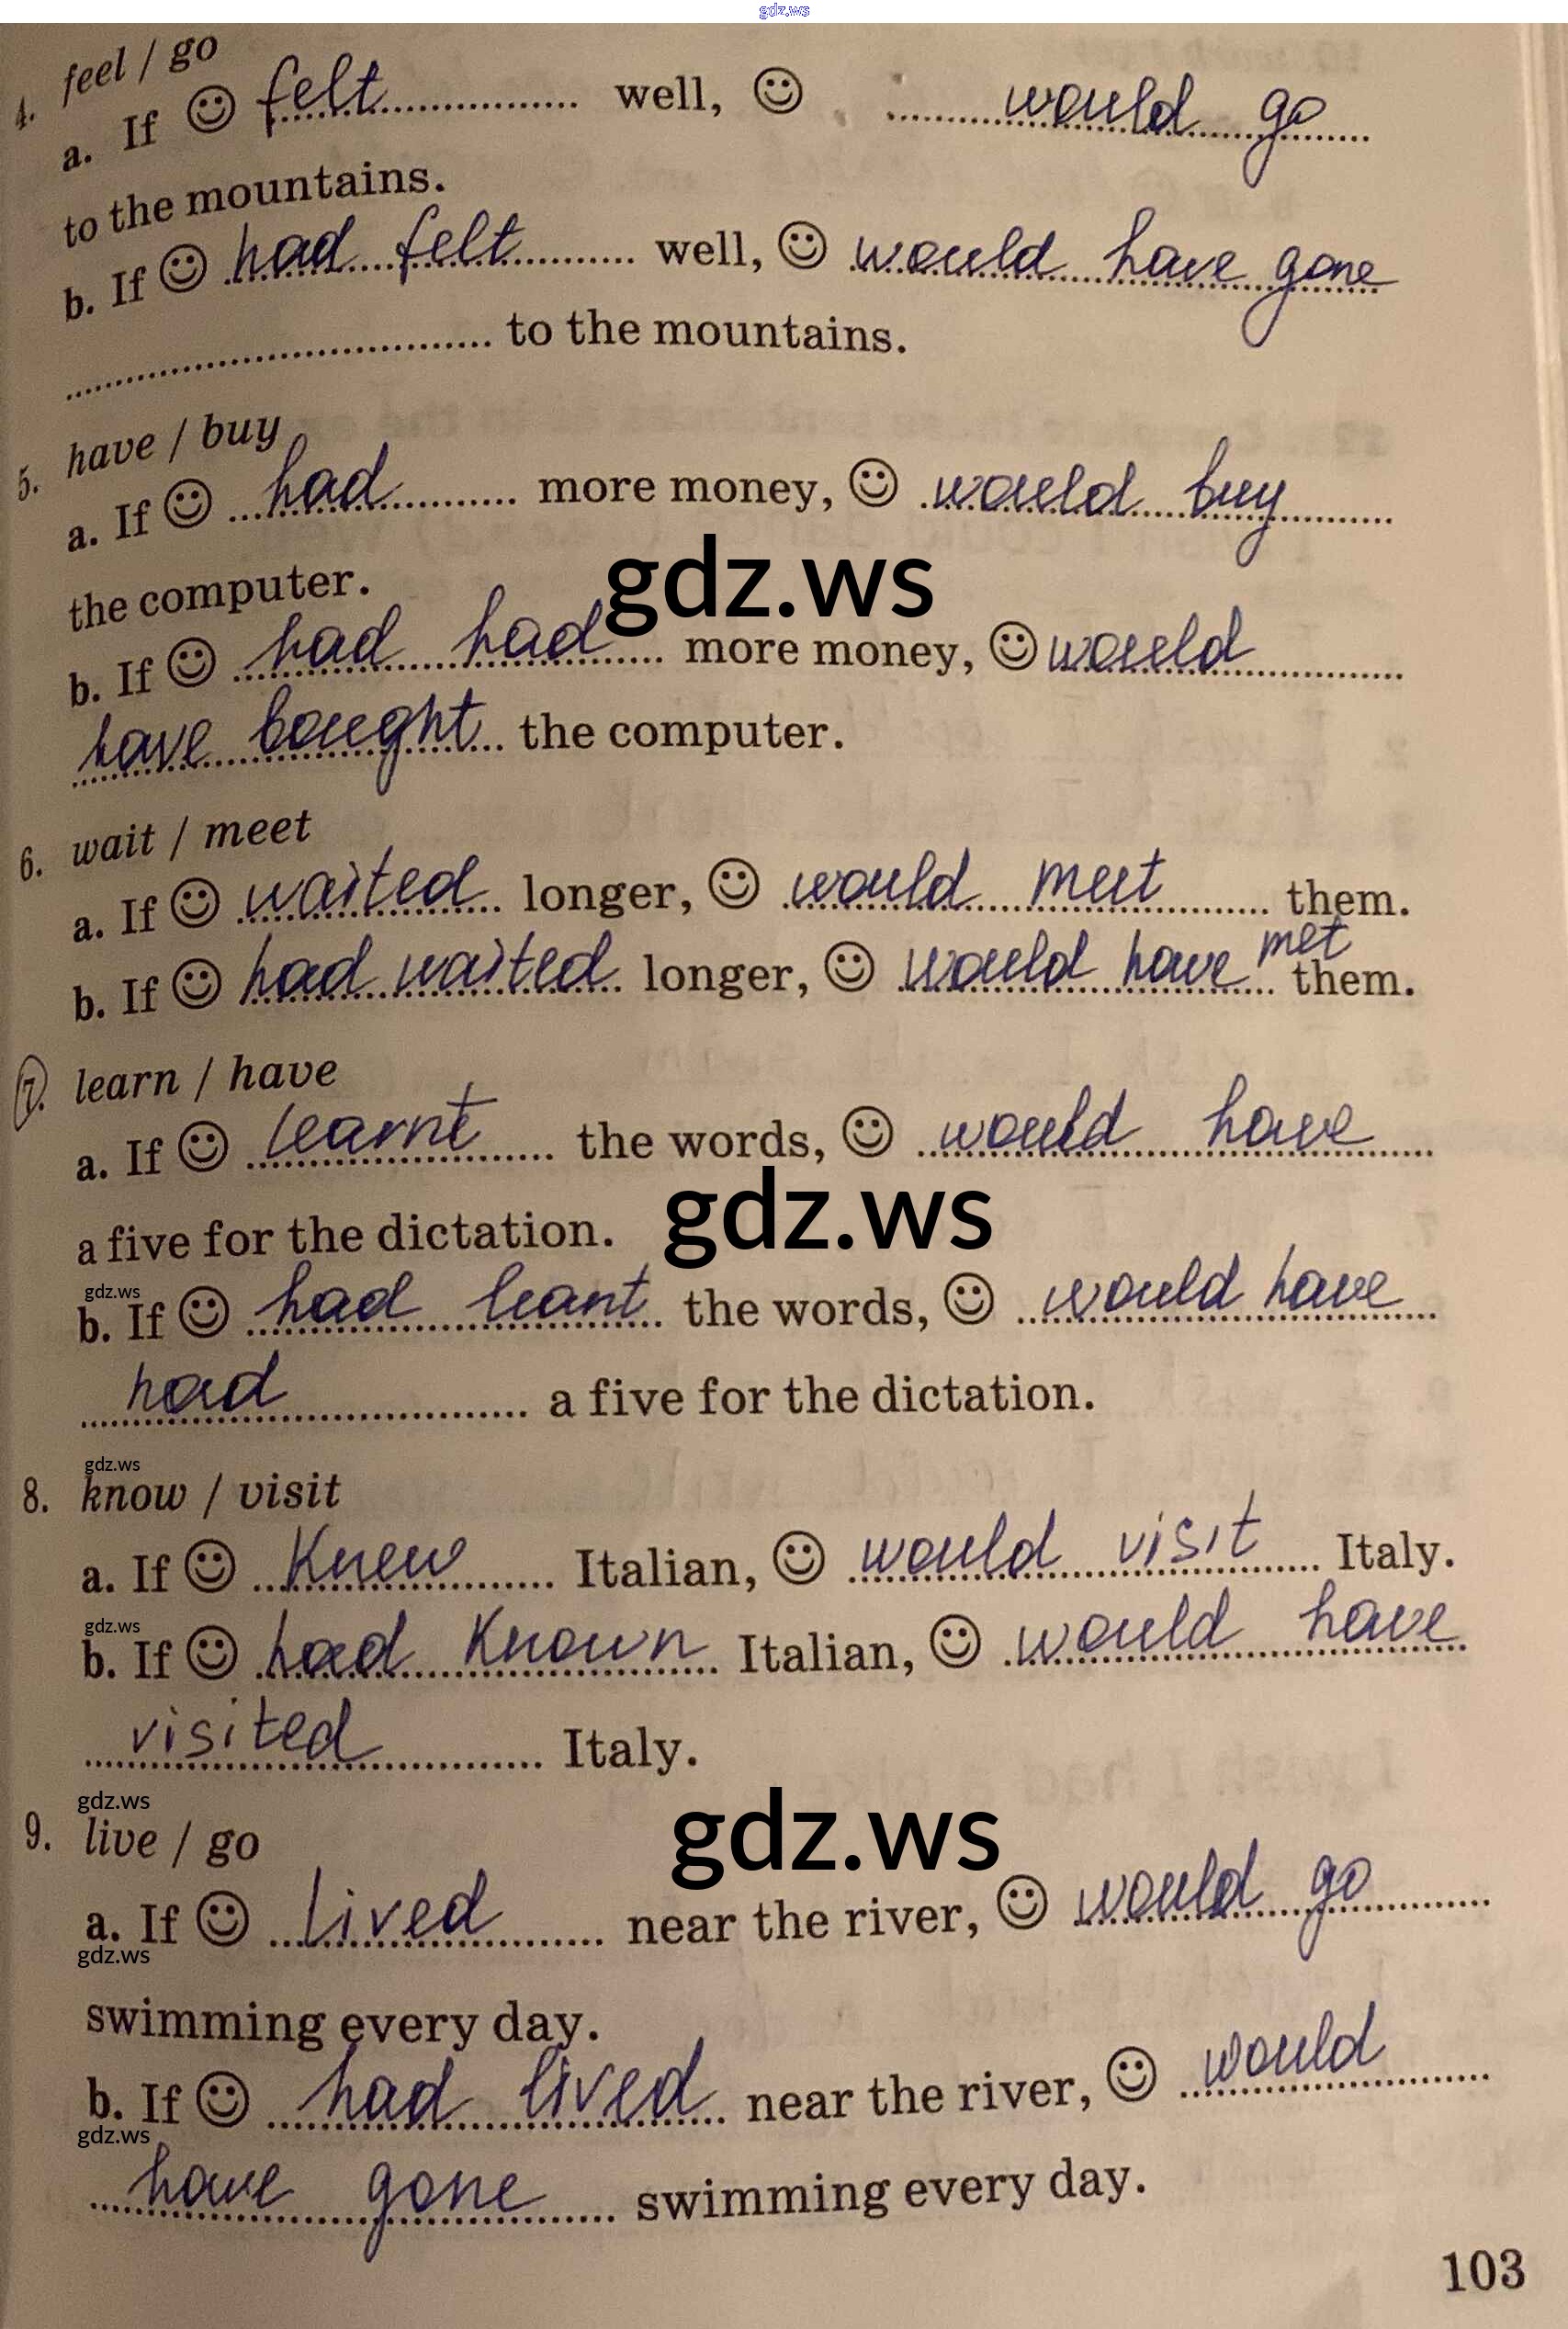 gdz.ws
4. feel / go
a. If ☺ felt well, ☺ would go
to the mountains.
b. If ☺ had felt well, ☺ would have gone
to the mountains.
5. have / buy
a. If ☺ had more money, ☺ would buy
gdz.ws
the computer.
b. If ☺ had had more money, ☺ would
have bought the computer.
6. wait / meet
a. If ☺ waited longer, ☺ would meet them.
b. If ☺ had waited longer, ☺ would have met them.
7. learn / have
a. If ☺ learnt the words, ☺ would have
gdz.ws
a five for the dictation.
gdz.ws
b. If ☺ had leant the words, ☺ would have
had a five for the dictation.
gdz.ws
8. know / visit
a. If ☺ knew Italian, ☺ would visit Italy.
gdz.ws
b. If ☺ had known Italian, ☺ would have
visited Italy.
gdz.ws
gdz.ws
9. live / go
a. If ☺ lived near the river, ☺ would go
gdz.ws
swimming every day.
b. If ☺ had lived near the river, ☺ would
gdz.ws
have gone swimming every day.
103